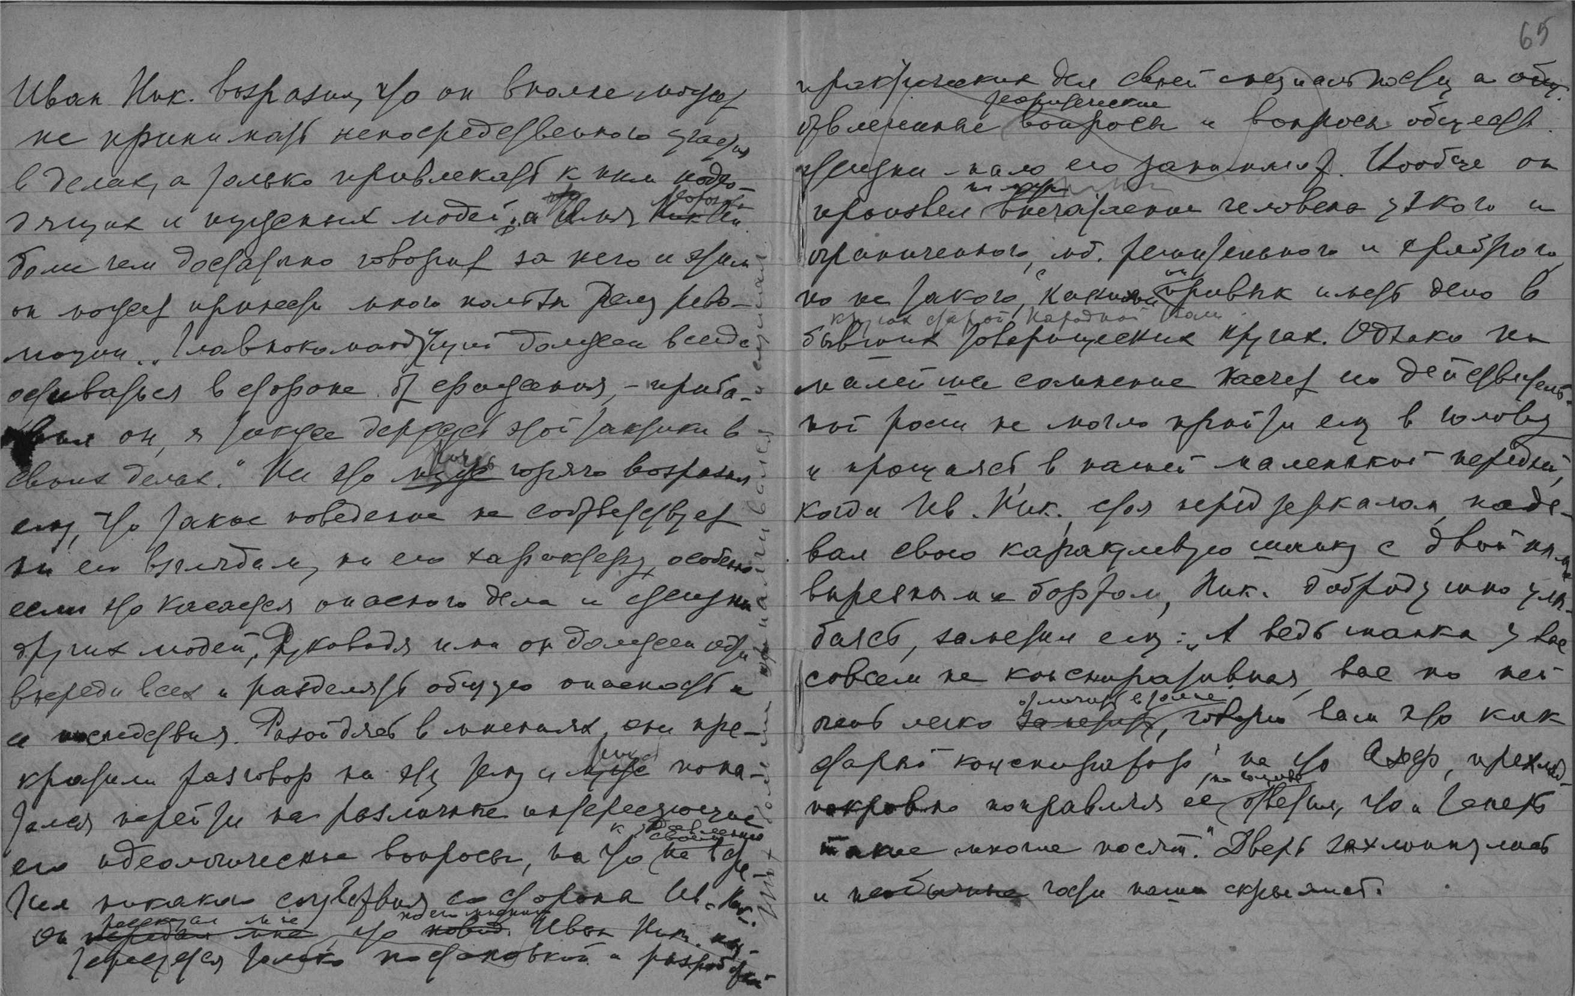 65
Иван Ник. возразил, что он вполне может
не принимать непосредственного участия
в делах, а только привлекать к ним подхо-
дящих и нужных людей, а Имя
более чем достаточно говорит за него и этим
он может принести много пользы делу рево-
люции. "Главнокомандующий должен всегда
оставаться в стороне от сражения, – приба-
вил он, я также держусь этой тактики в
своих делах." На это муж горячо возразил
ему, что такое поведение не соответствует
ни его взглядам, ни его характеру, особенно
если это касается опасного дела и жизни
других людей. Руководя ими он должен идти
впереди всех и разделять общую опасность и
её последствия. Разойдясь в мнениях, они пре-
кратили разговор на эту тему и муж попы-
тался перейти на различные интересующие
его идеологические вопросы, но что не встре-
тил никакого сочувствия со стороны Ив. Ник.
Он передал мне, что Иван Ник. ин-
тересуется только постановкой и разработкой
практических дел своей специальности, а
отвлеченные теоретические вопросы и вопросы обществ.
жизни мало его занимают. Вообще он
произвел впечатление человека узкого и
ограниченного, м.б. решительного и храброго,
но не такого, с какими он привык иметь дело в
кругах старой Народной Воли
бывших товарищеских кругах. Однако ни
малейшее сомнение насчет его действитель-
ной роли не могло прийти ему в голову
и прощаясь в нашей маленькой передней,
когда Ив. Ник., стоя перед зеркалом, наде-
вал свою каракулевую шапку с двойным
вырезным бортом, Ник. добродушно улы-
баясь, заметил ему: "А ведь шапка у вас
совсем не конспиративная, вас по ней
очень легко отличить в толпе, говорю вам это как
старый конспиратор" на что Азеф, хлад-
нокровно поправляя её на голове, ответил, что "теперь
такие многие носят." Дверь захлопнулась
и необычные гости наши скрылись.